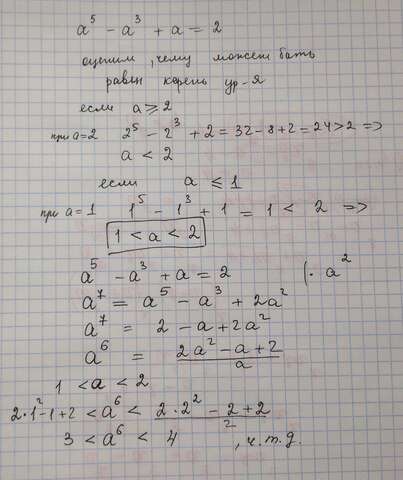 a⁵ - a³ + a = 2
оценим, чему может быть
равен корень ур-я
если a ⩾ 2
при a=2 2⁵ - 2³ + 2 = 32 - 8 + 2 = 24 > 2 =>
a < 2
если a ⩽ 1
при a=1 1⁵ - 1³ + 1 = 1 < 2 =>
1 < a < 2
a⁵ - a³ + a = 2 (· a²
a⁷ = a⁵ - a³ + 2a²
a⁷ = 2 - a + 2a²
a⁶ = (2a² - a + 2)/a
1 < a < 2
2·1² - 1 + 2 < a⁶ < (2·2² - 2 + 2)/2
3 < a⁶ < 4 , ч.т.д.